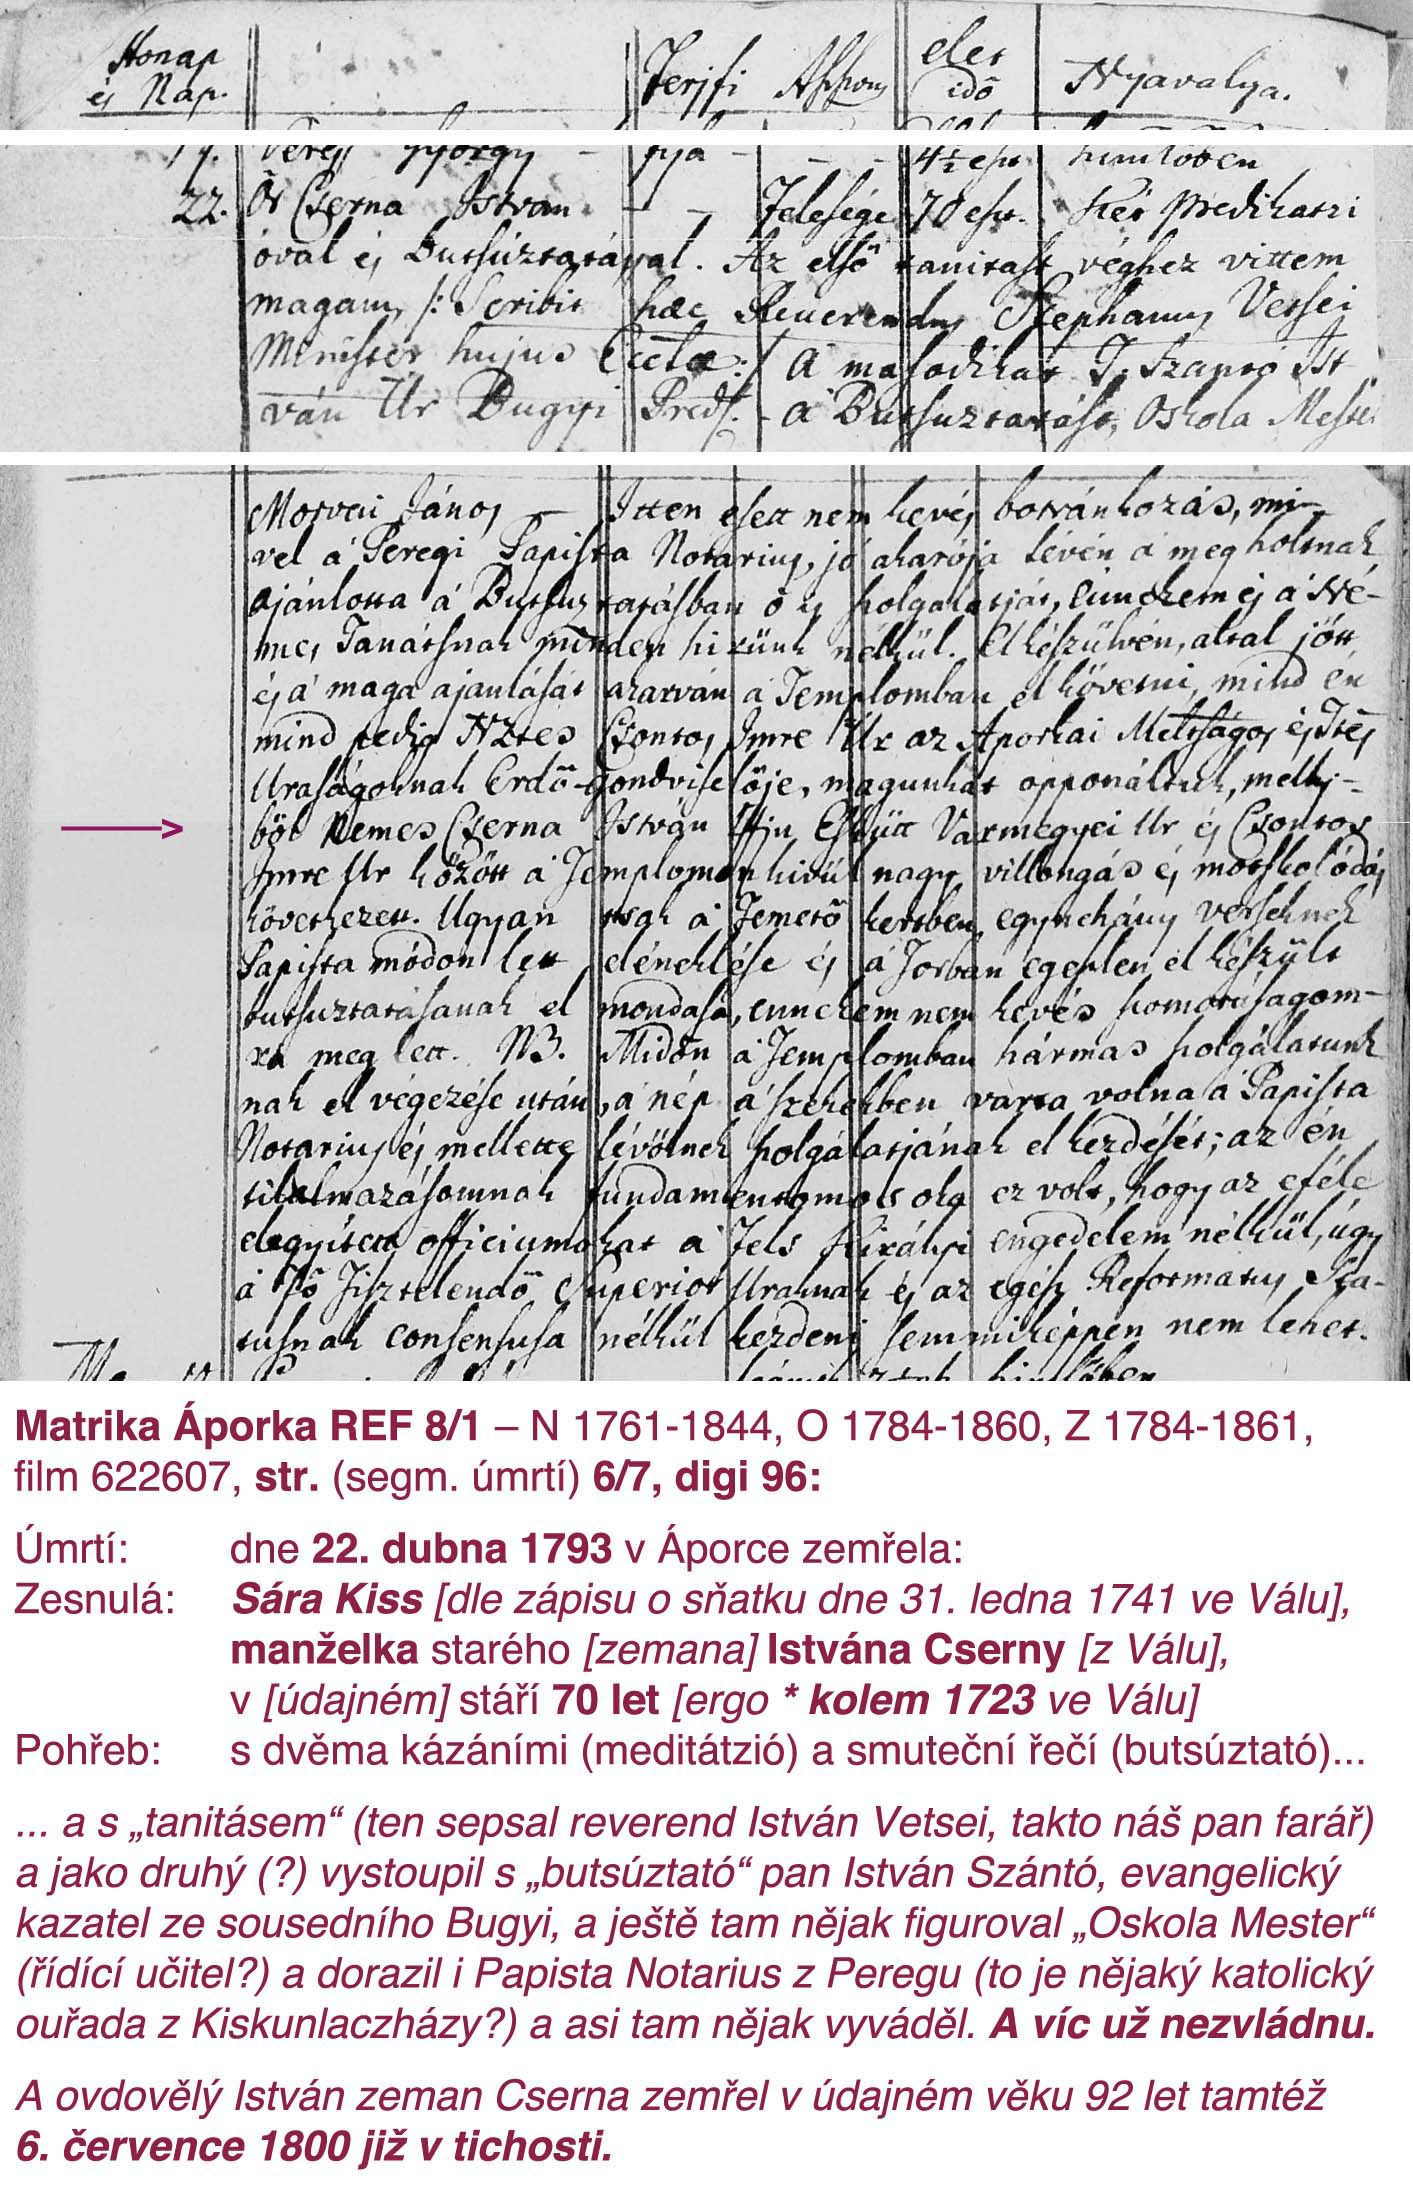 Honap
és Nap.
Férjfi Aſſzony
elet
idő
Nyavalya.
19. Veres György – fija – – – 4½ eszt. himlőben
22. Ör Cserna Istvan – – Felesége 70 eszt. Két Predikatzi
óval és Butsúztatással. Az első tanitast véghez vittem
magam, /: Scribit hæc Reverendus Stephanus Vetsei
Minister hujus Eccláe :/ A masodikat T. Szantó Ist
ván Ur Bugyi Préd. - a Butsuztatást, Oskola Mester
Morvai János – Itten esett nem kevés botránkozás, mi-
vel á Peregi Papista Notarius, jó akarója lévén a meg holtnak
ajánlotta á Butsuztatásban ő is szolgalatját, ennekem és á Ne-
mes Tanátsnak minden hirünk nélkül. El készülvén, által jött
és á maga ajanlását akarván a Templomban el követni, mind én
mind pedig Nztes Csontos Imre Ur az Aporkai Méltságos és Ttes
Uraságoknak Erdő-gondviselője, magunkat opponáltuk, melly-
ből Nemes Cserna István Ifju Eskütt Varmegyei Ur és Csontos
Imre Ur között a Templomon kivül nagy villongás és motskolódás
következett. Ugyan tsak á Temető kertben, egynehány verseknek
Papista módon lett eléneklése és á
butsuztatásanak el mondása, ennekem nem kevés szomorúságom-
ra meg lett. NB. Midőn á Templomban hármas szolgálatunk
nak el végezése után, a nép á székekben varta volna á Papista
Notarius és mellette lévőknek szolgálatjának el kezdését; az én
tilalmazásomnak fundamentomos oka ez volt, hogy az eféle
elegyitett officiumokat a Fels Királyi engedelem nélkül, úgy
á Fő Tisztelendő Superior Uraknak és az egész Reformatus Sta-
tusnak consensusa nélkül kezdeni semmiképpen nem lehet.
Matrika Áporka REF 8/1 – N 1761-1844, O 1784-1860, Z 1784-1861,
film 622607, str. (segm. úmrtí) 6/7, digi 96:
Úmrtí: dne 22. dubna 1793 v Áporce zemřela:
Zesnulá: Sára Kiss [dle zápisu o sňatku dne 31. ledna 1741 ve Válu],
manželka starého [zemana] Istvána Cserny [z Válu],
v [údajném] stáří 70 let [ergo * kolem 1723 ve Válu]
Pohřeb: s dvěma kázáními (meditátzió) a smuteční řečí (butsúztató)...
... a s „tanitásem“ (ten sepsal reverend István Vetsei, takto náš pan farář)
a jako druhý (?) vystoupil s „butsúztató“ pan István Szántó, evangelický
kazatel ze sousedního Bugyi, a ještě tam nějak figuroval „Oskola Mester“
(řídící učitel?) a dorazil i Papista Notarius z Peregu (to je nějaký katolický
ouřada z Kiskunlaczházy?) a asi tam nějak vyváděl. A víc už nezvládnu.
A ovdovělý István zeman Cserna zemřel v údajném věku 92 let tamtéž
6. července 1800 již v tichosti.